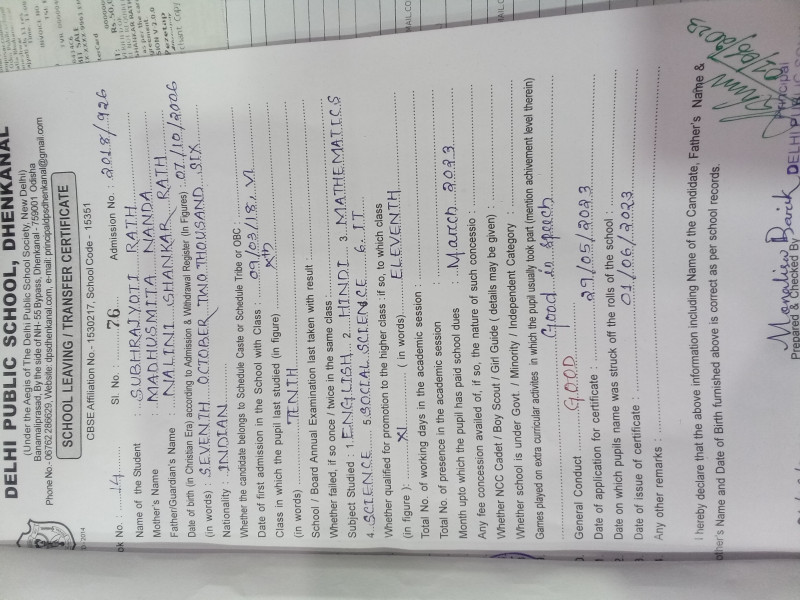 DELHI PUBLIC SCHOOL, DHENKANAL
(Under the Aegis of The Delhi Public School Society, New Delhi)
Banamaliprasad, By the side of NH- 55 Bypass, Dhenkanal - 759001 Odisha
Phone No.- 06762 286629, Website: dpsdhenkanal.com, e-mail: principaldpsdhenkanal@gmail.com
SCHOOL LEAVING / TRANSFER CERTIFICATE
CBSE Affiliation No.- 1530217, School Code - 15351
ok No. : 14 Sl. No. 76 Admission No. : 2018/926
Name of the Student : SUBHRAJYOTI RATH
Mother's Name : MADHUSMITA NANDA
Father/Guardian's Name : NALINI SHANKAR RATH
Date of birth (in Christian Era) according to Admission & Withdrawal Register (In Figures) : 07/10/2006
(in words) : SEVENTH OCTOBER TWO THOUSAND SIX
Nationality : INDIAN
Whether the candidate belongs to Schedule Caste or Schedule Tribe or OBC :
Date of first admission in the School with Class : 09/03/18, VI
Class in which the pupil last studied (in figure) : Xth
(in words) TENTH
School / Board Annual Examination last taken with result :
Whether failed, if so once / twice in the same class :
Subject Studied : 1. ENGLISH 2. HINDI 3. MATHEMATICS
4. SCIENCE 5. SOCIAL SCIENCE 6. IT
Whether qualified for promotion to the higher class : if so, to which class
(in figure ): XI ( in words) ELEVENTH
Total No. of working days in the academic session :
Total No. of presence in the academic session :
Month upto which the pupil has paid school dues : March 2023
Any fee concession availed of, if so, the nature of such concessio :
Whether NCC Cadet / Boy Scout / Girl Guide ( details may be given) :
Whether school is under Govt. / Minority / Independent Category :
Games played on extra curricular activites in which the pupil usually took part (mention achivement level therein)
Good in speech
General Conduct GOOD
Date of application for certificate : 29/05/2023
Date on which pupils name was struck off the rolls of the school : 01/06/2023
Date of issue of certificate :
Any other remarks :
I hereby declare that the above information including Name of the Candidate, Father's Name &
other's Name and Date of Birth furnished above is correct as per school records.
Monalisa Barik
Prepared & Checked By
Principal
DELHI PUBLIC SC